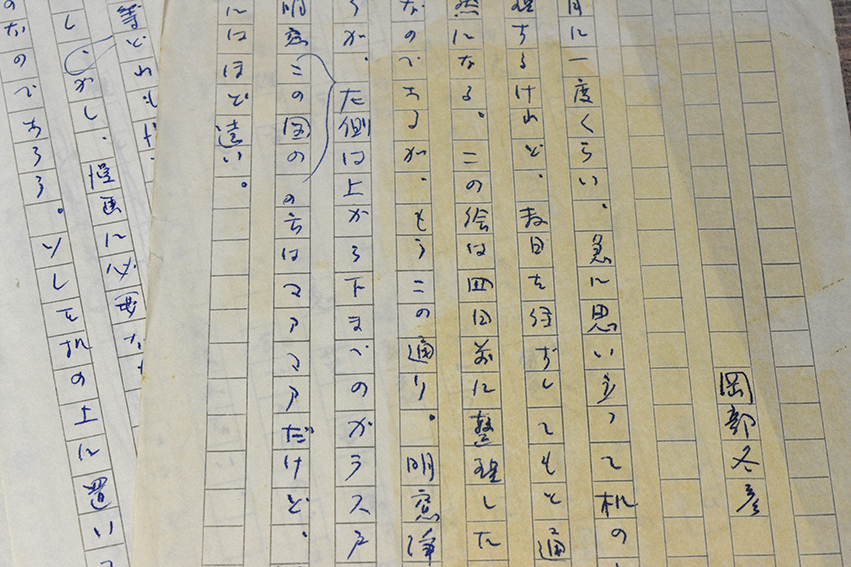 岡部冬彦
月に一度くらい、急に思い立って机の
理するけれど、数日を経ずしてもと通
然になる。この絵は四日前に整理した
なのであるが、もうこの通り。明窓浄
が、左側は上から下までのガラス戸
明窓この図のの方はマアマアだけど、
にはほど遠い。
しかし、漫画に必要な
のなのであろう。ソレを机の上に置いて